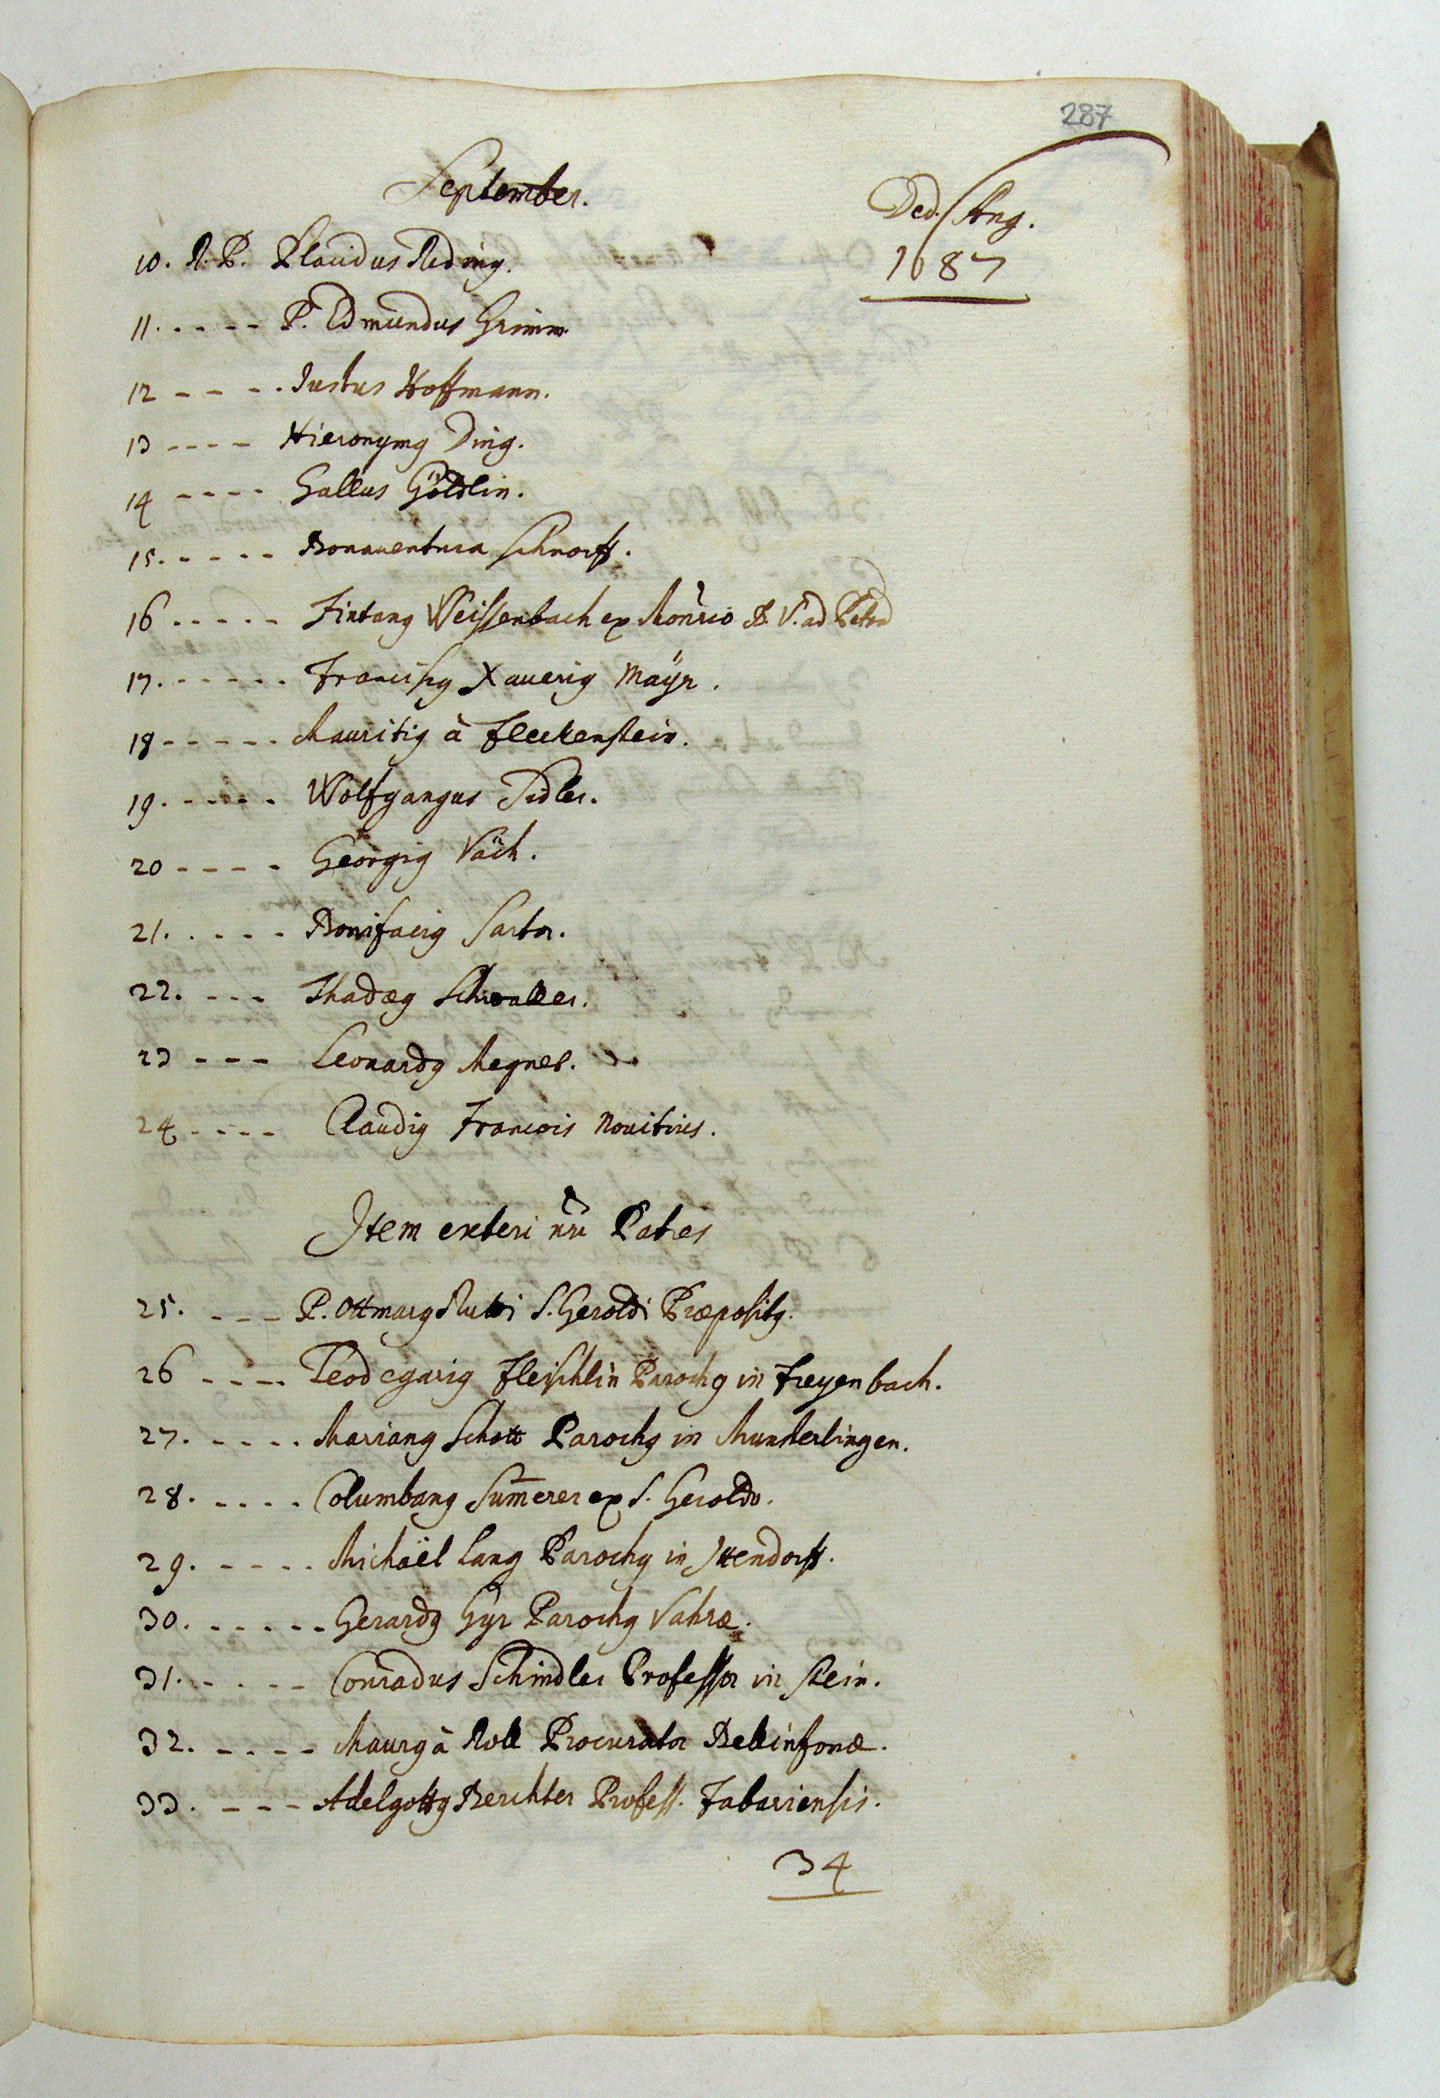 287
September.
Ded. Ang.
1687
10. R. P. Placidus Reding.
11. - - - - P. Edmundus Grimm
12 - - - - Justus Hoffmann.
13 - - - - Hieronymg Ding.
14 - - - - Gallus Göldlin.
15. - - - - Bonauentura Schnorff.
16 - - - - - Fintang Weissenbach ex Monrio B. V. ad Petrā
17. - - - - - Franciscg Xauerig Mäyr.
18 - - - - - Mauritig à Fleckenstein.
19. - - - - Wolfgangus Sidler.
20 - - - - Georgig Väch.
21. - - - - Bonifacig Sartor.
22. - - - Thadæg Schwaller.
23 - - - Leonardg Megnet.
24 - - - - Claudig Francois Nouitius.
Item exteri nri Patres
25. - - - P. Ottmarg Rutti S. Geroldi Præpositg.
26 - - - - Leodegarig Fleischlin Parochg in Freyenbach.
27. - - - - Mariang Schott Parochg in Munderlingen.
28. - - - - Columbang Sum̄erer ex S. Geroldo.
29. - - - - Michaël Lang Parochg in Ittendorff.
30. - - - - - Gerardg Gyr Parochg Vahræ.
31. - - - - Conradus Schindler Professor in Stein.
32. - - - - Maurg à Roll Procurator Bellinsonæ.
33. - - - Adelgottg Berchter Profess. Fabariensis.
34